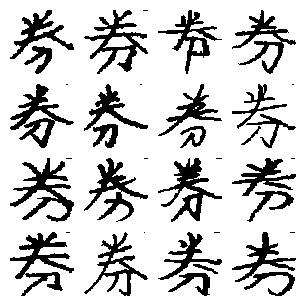 券券券券
券券券券
券券券券
券券券券